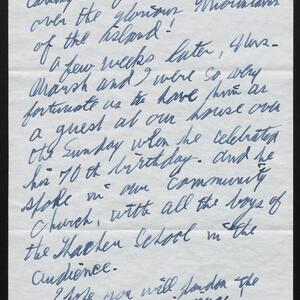 over the glorious mountains
of the island!
A few weeks later, Mrs.
Marsh and I were so very
fortunate as to have him as
a guest at our house over
the Sunday when he celebrated
his 70th birthday. And he
spoke in our Community
Church, with all the boys of
the Thacher School in the
audience.
I hope you will pardon the